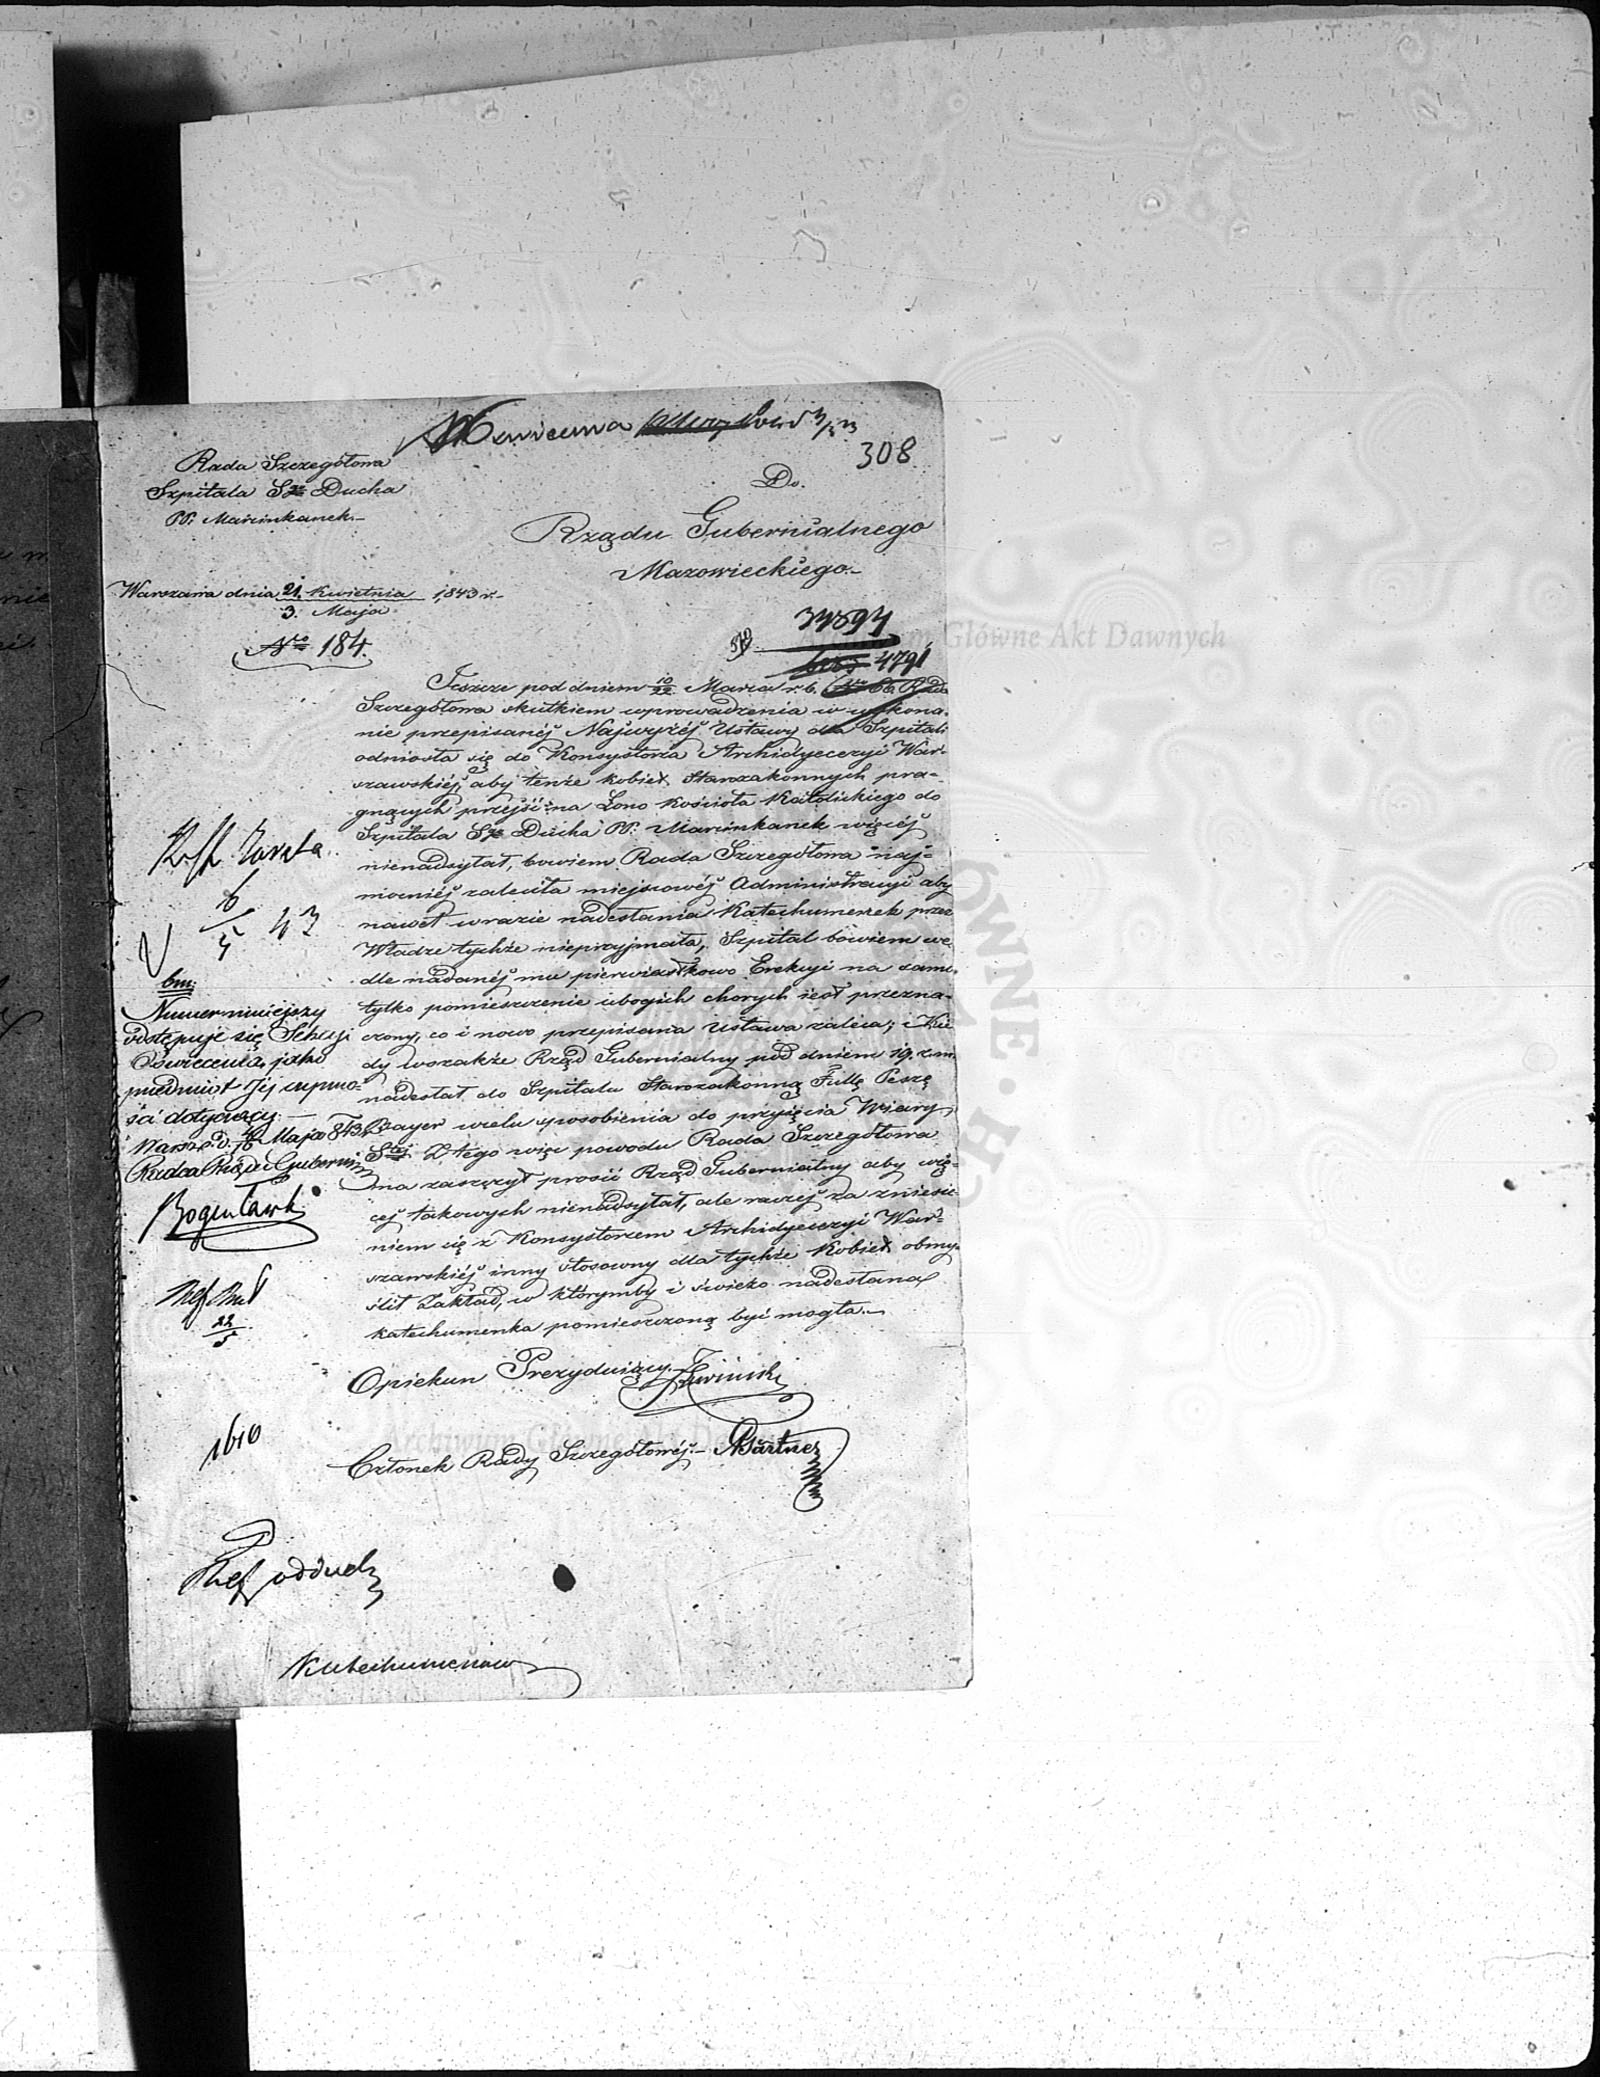 308
Rada Szczegółowa
Szpitala Sgo Ducha
PP: Marcinkanek
Do.
Rządu Gubernialnego
Mazowieckiego.
Warszawa dnia 21. Kwietnia 1843 r.
3. Maja
Nro 184.
34894
4791
Jeszcze pod dniem 10/22 Marca r. b. No 66 Rada
Szczegółowa skutkiem wprowadzenia w wykona-
nie przepisanéj Najwyżéj Ustawy dla Szpitali
odniosła się do Konsystorza Archidyecezyi War-
szawskiéj, aby tenże kobiet Starozakonnych pra-
gnących przejść na Łono Kościoła Katolickiego do
Szpitala Sgo Ducha PP: Marcinkanek więcéj
nienadsyłał, bowiem Rada Szczegółowa naj-
mocniéj zaleciła miejscowéj Administracyi aby
nawet w razie nadesłania Katechumenek przez
Władze tychże nieprzyjmała, Szpital bowiem we-
dle nadanéj mu pierwiastkowo Erekcyi na samo
tylko pomieszczenie ubogich chorych jest przezna-
czony, co i nowo przepisana Ustawa zaleca; Kie
dy wszakże Rząd Gubernialny pod dniem 19. z. m.
nadesłał do Szpitala Starozakonną Fullę Peszę
Bayer wielu sposobienia do przyjęcia Wiary
Stéj Z tego więc powodu Rada Szczegółowa
ma zaszczyt prosić Rząd Gubernialny aby wię-
céj takowych nienadsyłał, ale raczéj za zniesie-
niem się z Konsystorzem Archidyecezyi War-
szawskiéj inny stosowny dla tychże Kobiet obmy-
ślił Zakład, w którymby i świeżo nadesłana
katechumenka pomieszczoną być mogła.
Opiekun Prezydujący
Członek Rady Szczegółowéj
6/5 43
bm.
Numer niniejszy
odstępuje się Sekcyi
Oświecenia, jako
przedmiot Jéj czynno-
ści dotyczący.
Warsz. d. Maja 843
Radca Rządu Gubernial
22/5
1610
Katechumenów
Archiwum Główne Akt Dawnych
Archiwum Główne Akt Dawnych